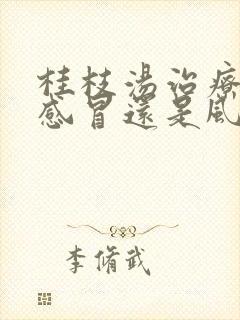 桂枝湯治療
感冒還是風
李脩武